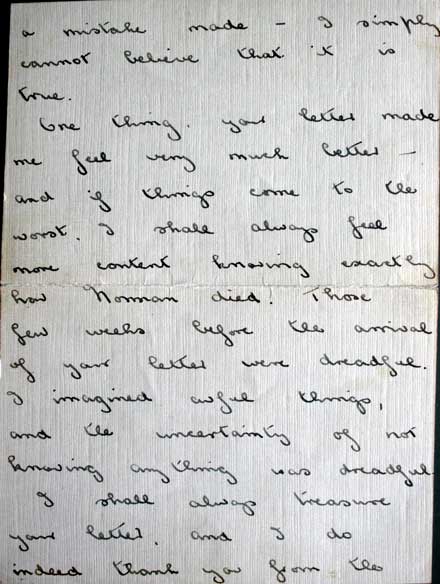 a mistake made – I simply
cannot believe that it is
true.
One thing. your letter made
me feel very much better –
and if things come to the
worst. I shall always feel
more content knowing exactly
how Norman died! Those
few weeks before the arrival
of your letter were dreadful.
I imagined awful things,
and the uncertainty of not
knowing anything was dreadful
I shall always treasure
your letter. and I do
indeed thank you from the